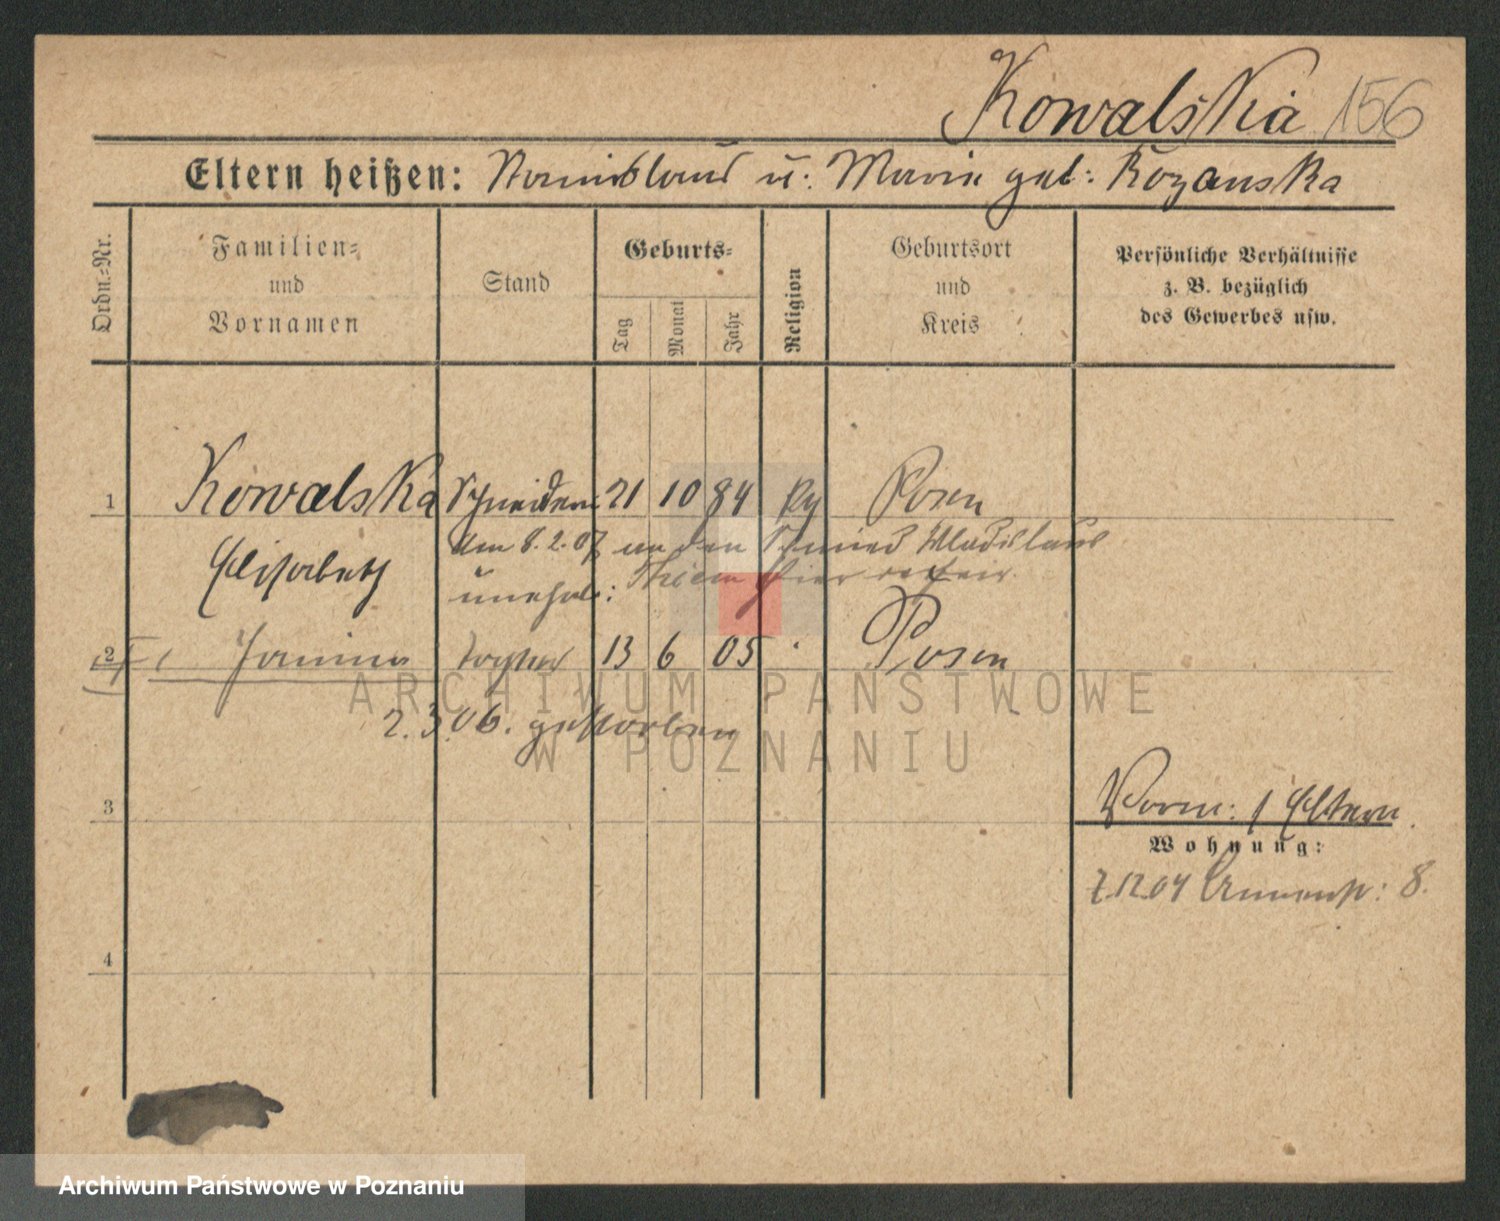 Kowalska 156
Eltern heißen: Stanislaus u. Marie geb: Rozanska
Ordn.-Nr.
Familien-
und
Vornamen
Stand
Geburts-
Tag
Monat
Jahr
Religion
Geburtsort
und
Kreis
Persönliche Verhältnisse
z. B. bezüglich
des Gewerbes usw.
1 Kowalska Schneiderin 21 10 84 Posen
am 8.2.07 an den Schmied Wladislaus
Elisabeth
hier
unehel:
2 Janina Tochter 13 6 05 Posen
2.3.06. gestorben
3
Vorm: / Eltern.
Wohnung:
7.12.04 Annenstr: 8.
4
ARCHIWUM PAŃSTWOWE
W POZNANIU
Archiwum Państwowe w Poznaniu